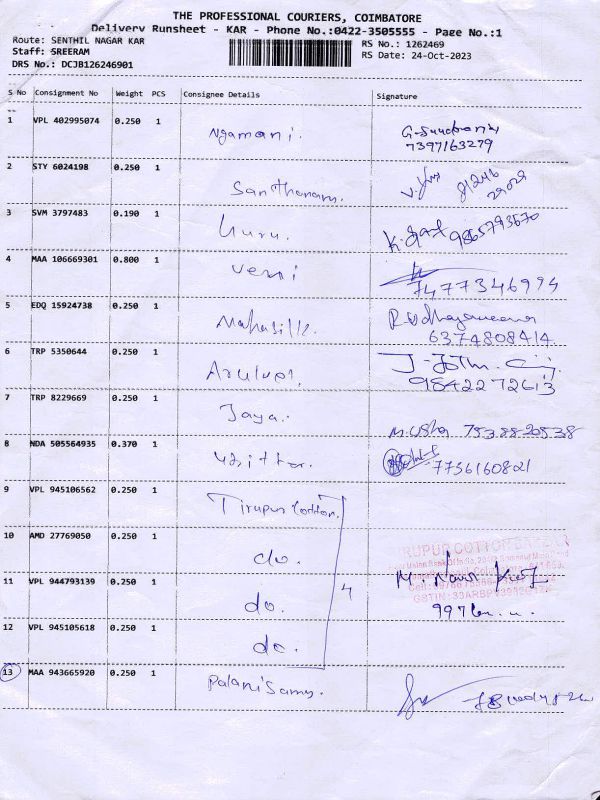 THE PROFESSIONAL COURIERS, COIMBATORE
Delivery Runsheet - KAR - Phone No.:0422-3505555 - Page No.:1
Route: SENTHIL NAGAR KAR
RS No.: 1262469
Staff: SREERAM
RS Date: 24-Oct-2023
DRS No.: DCJB126246901
S No Consignment No Weight PCS Consignee Details Signature
1 VPL 402995074 0.250 1 Ngamani.
7397163279
2 STY 6024198 0.250 1 Santhanam.
81246
29029
3 SVM 3797483 0.190 1 Guru.
9865793570
4 MAA 106669301 0.800 1 Veni
7477346994
5 EDQ 15924738 0.250 1
6374808414
6 TRP 5350644 0.250 1
9842272613
7 TRP 8229669 0.250 1 Jaya. M. Usha 753.88.205.38
8 NDA 505564935 0.370 1
7756160821
9 VPL 945106562 0.250 1 Tirupur Cotton.
10 AMD 27769050 0.250 1 do.
TIRUPUR COTTON
11 VPL 944793139 0.250 1 do. 4 M.
12 VPL 945105618 0.250 1 do.
13 MAA 943665920 0.250 1 Palanisamy.